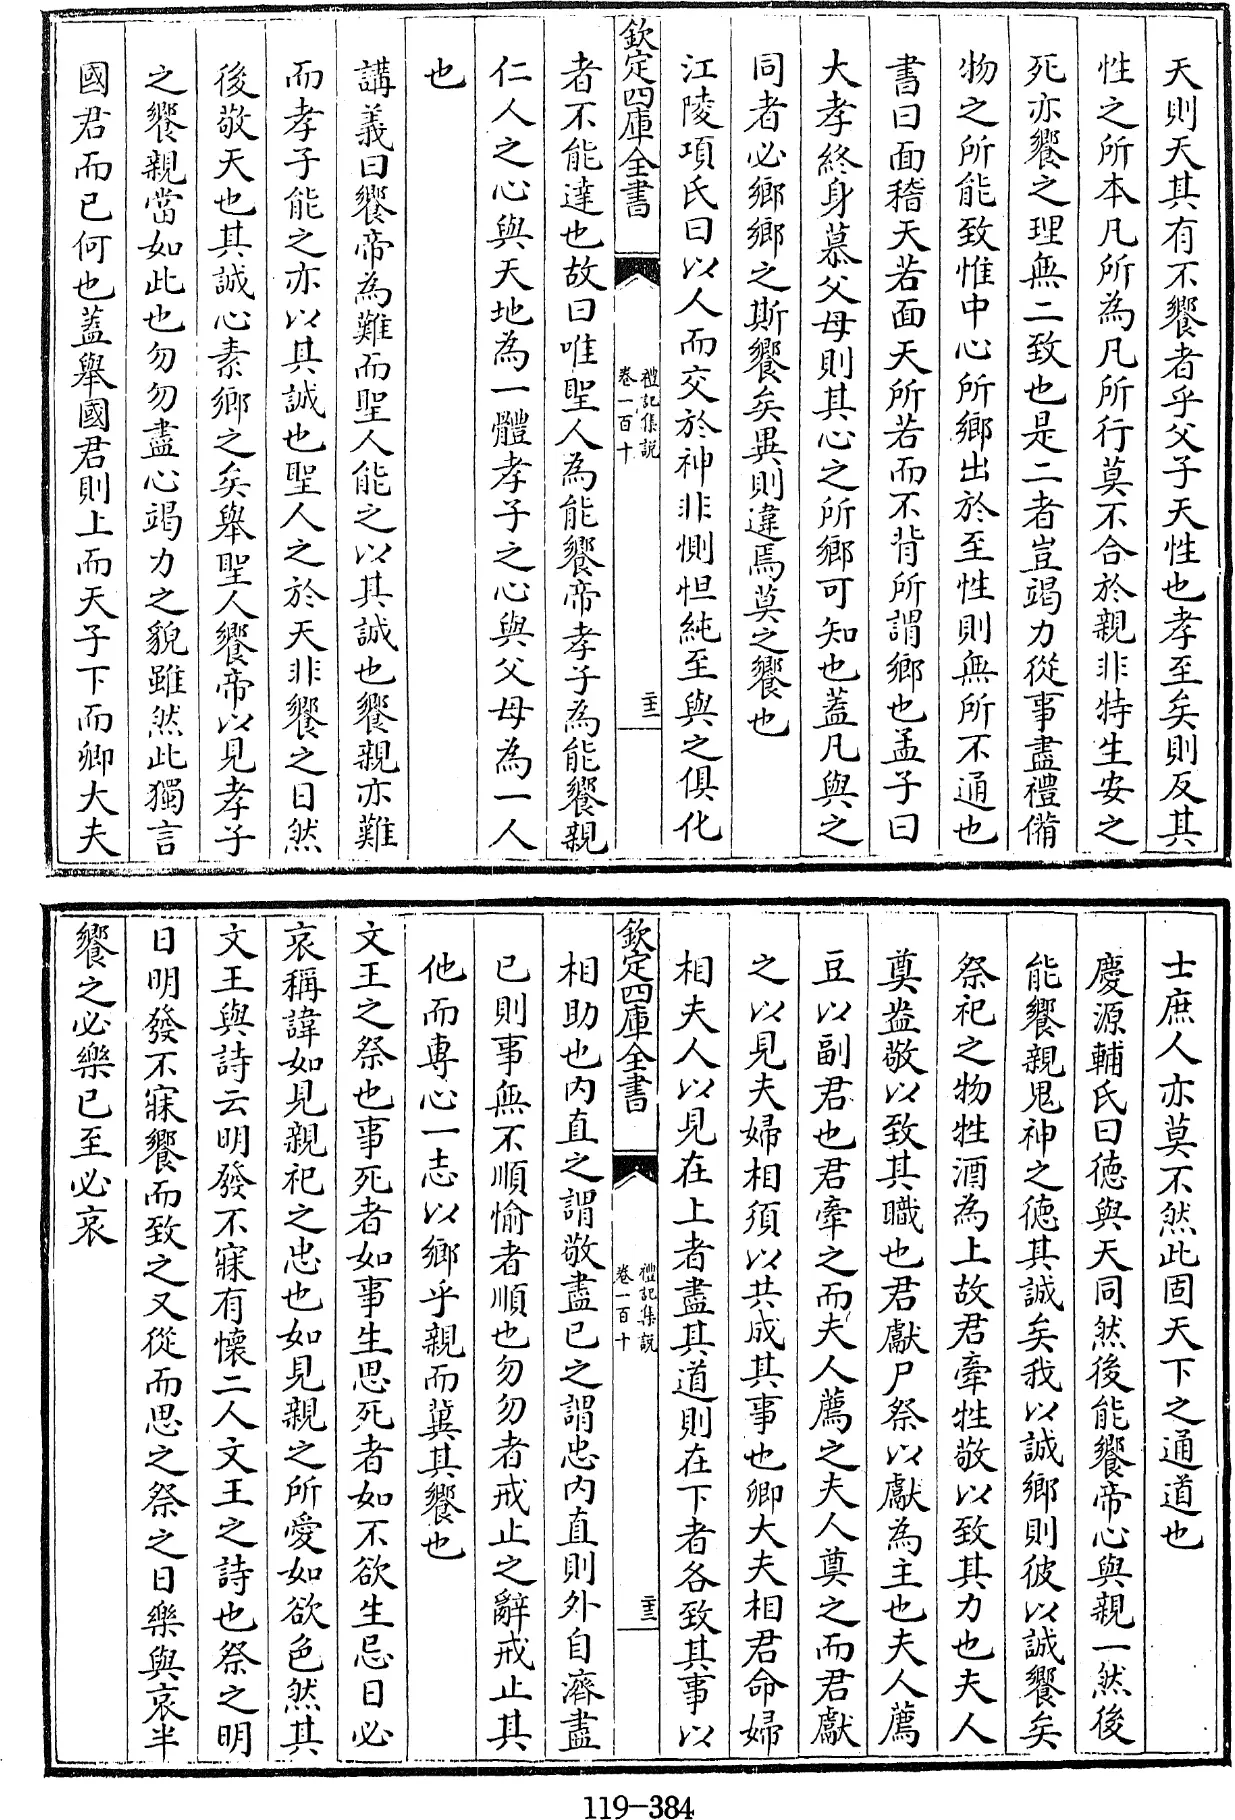 天則天其有不饗者乎父子天性也孝至矣則反其
性之所本凡所為凡所行莫不合於親非特生安之
死亦饗之理無二致也是二者豈竭力從事盡禮備
物之所能致惟中心所鄉出於至性則無所不通也
書曰面稽天若面天所若而不背所謂鄉也孟子曰
大孝終身慕父母則其心之所鄉可知也蓋凡與之
同者必鄉鄉之斯饗矣異則違焉莫之饗也
江陵項氏曰以人而交於神非惻怛純至與之俱化
欽定四庫全書
禮記集説
卷一百十
二十二
者不能達也故曰唯聖人為能饗帝孝子為能饗親
仁人之心與天地為一體孝子之心與父母為一人
也
講義曰饗帝為難而聖人能之以其誠也饗親亦難
而孝子能之亦以其誠也聖人之於天非饗之日然
後敬天也其誠心素鄉之矣舉聖人饗帝以見孝子
之饗親當如此也勿勿盡心竭力之貌雖然此獨言
國君而已何也蓋舉國君則上而天子下而卿大夫
士庶人亦莫不然此固天下之通道也
慶源輔氏曰德與天同然後能饗帝心與親一然後
能饗親鬼神之德其誠矣我以誠鄉則彼以誠饗矣
祭祀之物牲酒為上故君牽牲敬以致其力也夫人
奠盎敬以致其職也君獻尸祭以獻為主也夫人薦
豆以副君也君牽之而夫人薦之夫人奠之而君獻
之以見夫婦相須以共成其事也卿大夫相君命婦
相夫人以見在上者盡其道則在下者各致其事以
欽定四庫全書
禮記集説
卷一百十
二十三
相助也內直之謂敬盡已之謂忠內直則外自齊盡
已則事無不順愉者順也勿勿者戒止之辭戒止其
他而專心一志以鄉乎親而冀其饗也
文王之祭也事死者如事生思死者如不欲生忌日必
哀稱諱如見親祀之忠也如見親之所愛如欲色然其
文王與詩云明發不寐有懷二人文王之詩也祭之明
日明發不寐饗而致之又從而思之祭之日樂與哀半
饗之必樂已至必哀
119-384